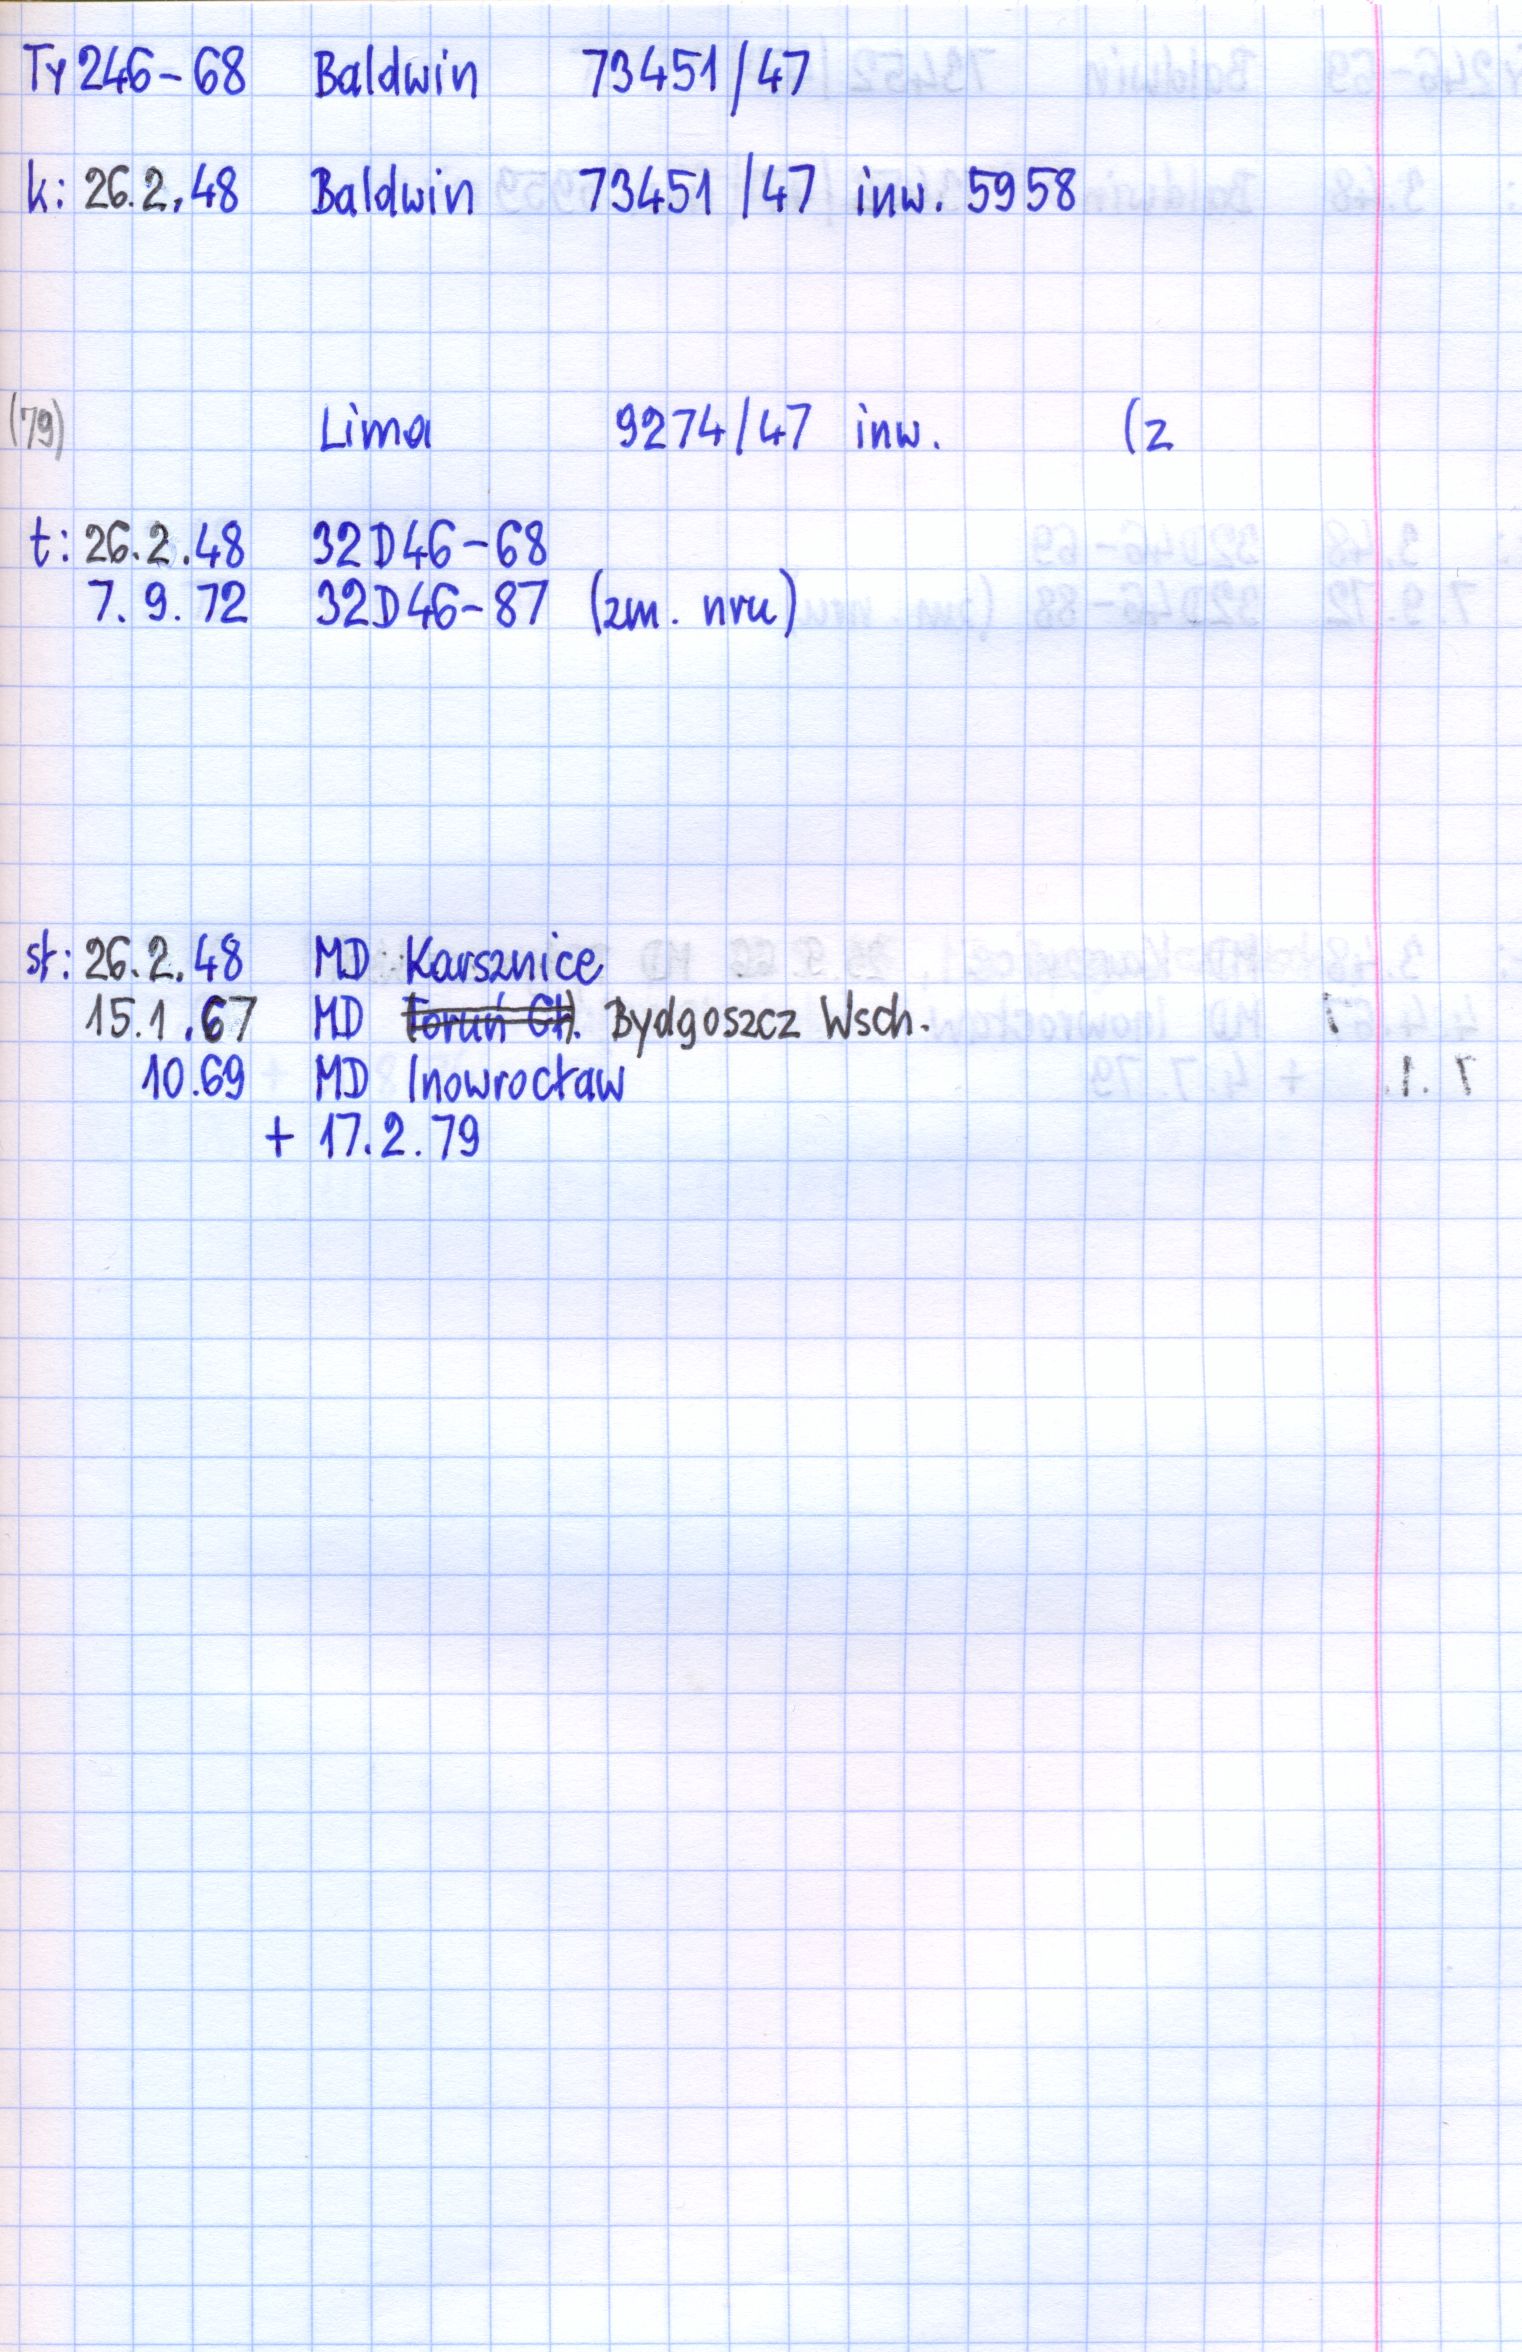 Ty246-68 Baldwin 73451/47
k: 26.2.48 Baldwin 73451/47 inw. 5958
(79) Lima 9274/47 inw. (z
t: 26.2.48 32D46-68
7.9.72 32D46-87 (zm. nru)
st: 26.2.48 MD Karsznice
15.1.67 MD Toruń Gł. Bydgoszcz Wsch.
10.69 MD Inowrocław
+ 17.2.79